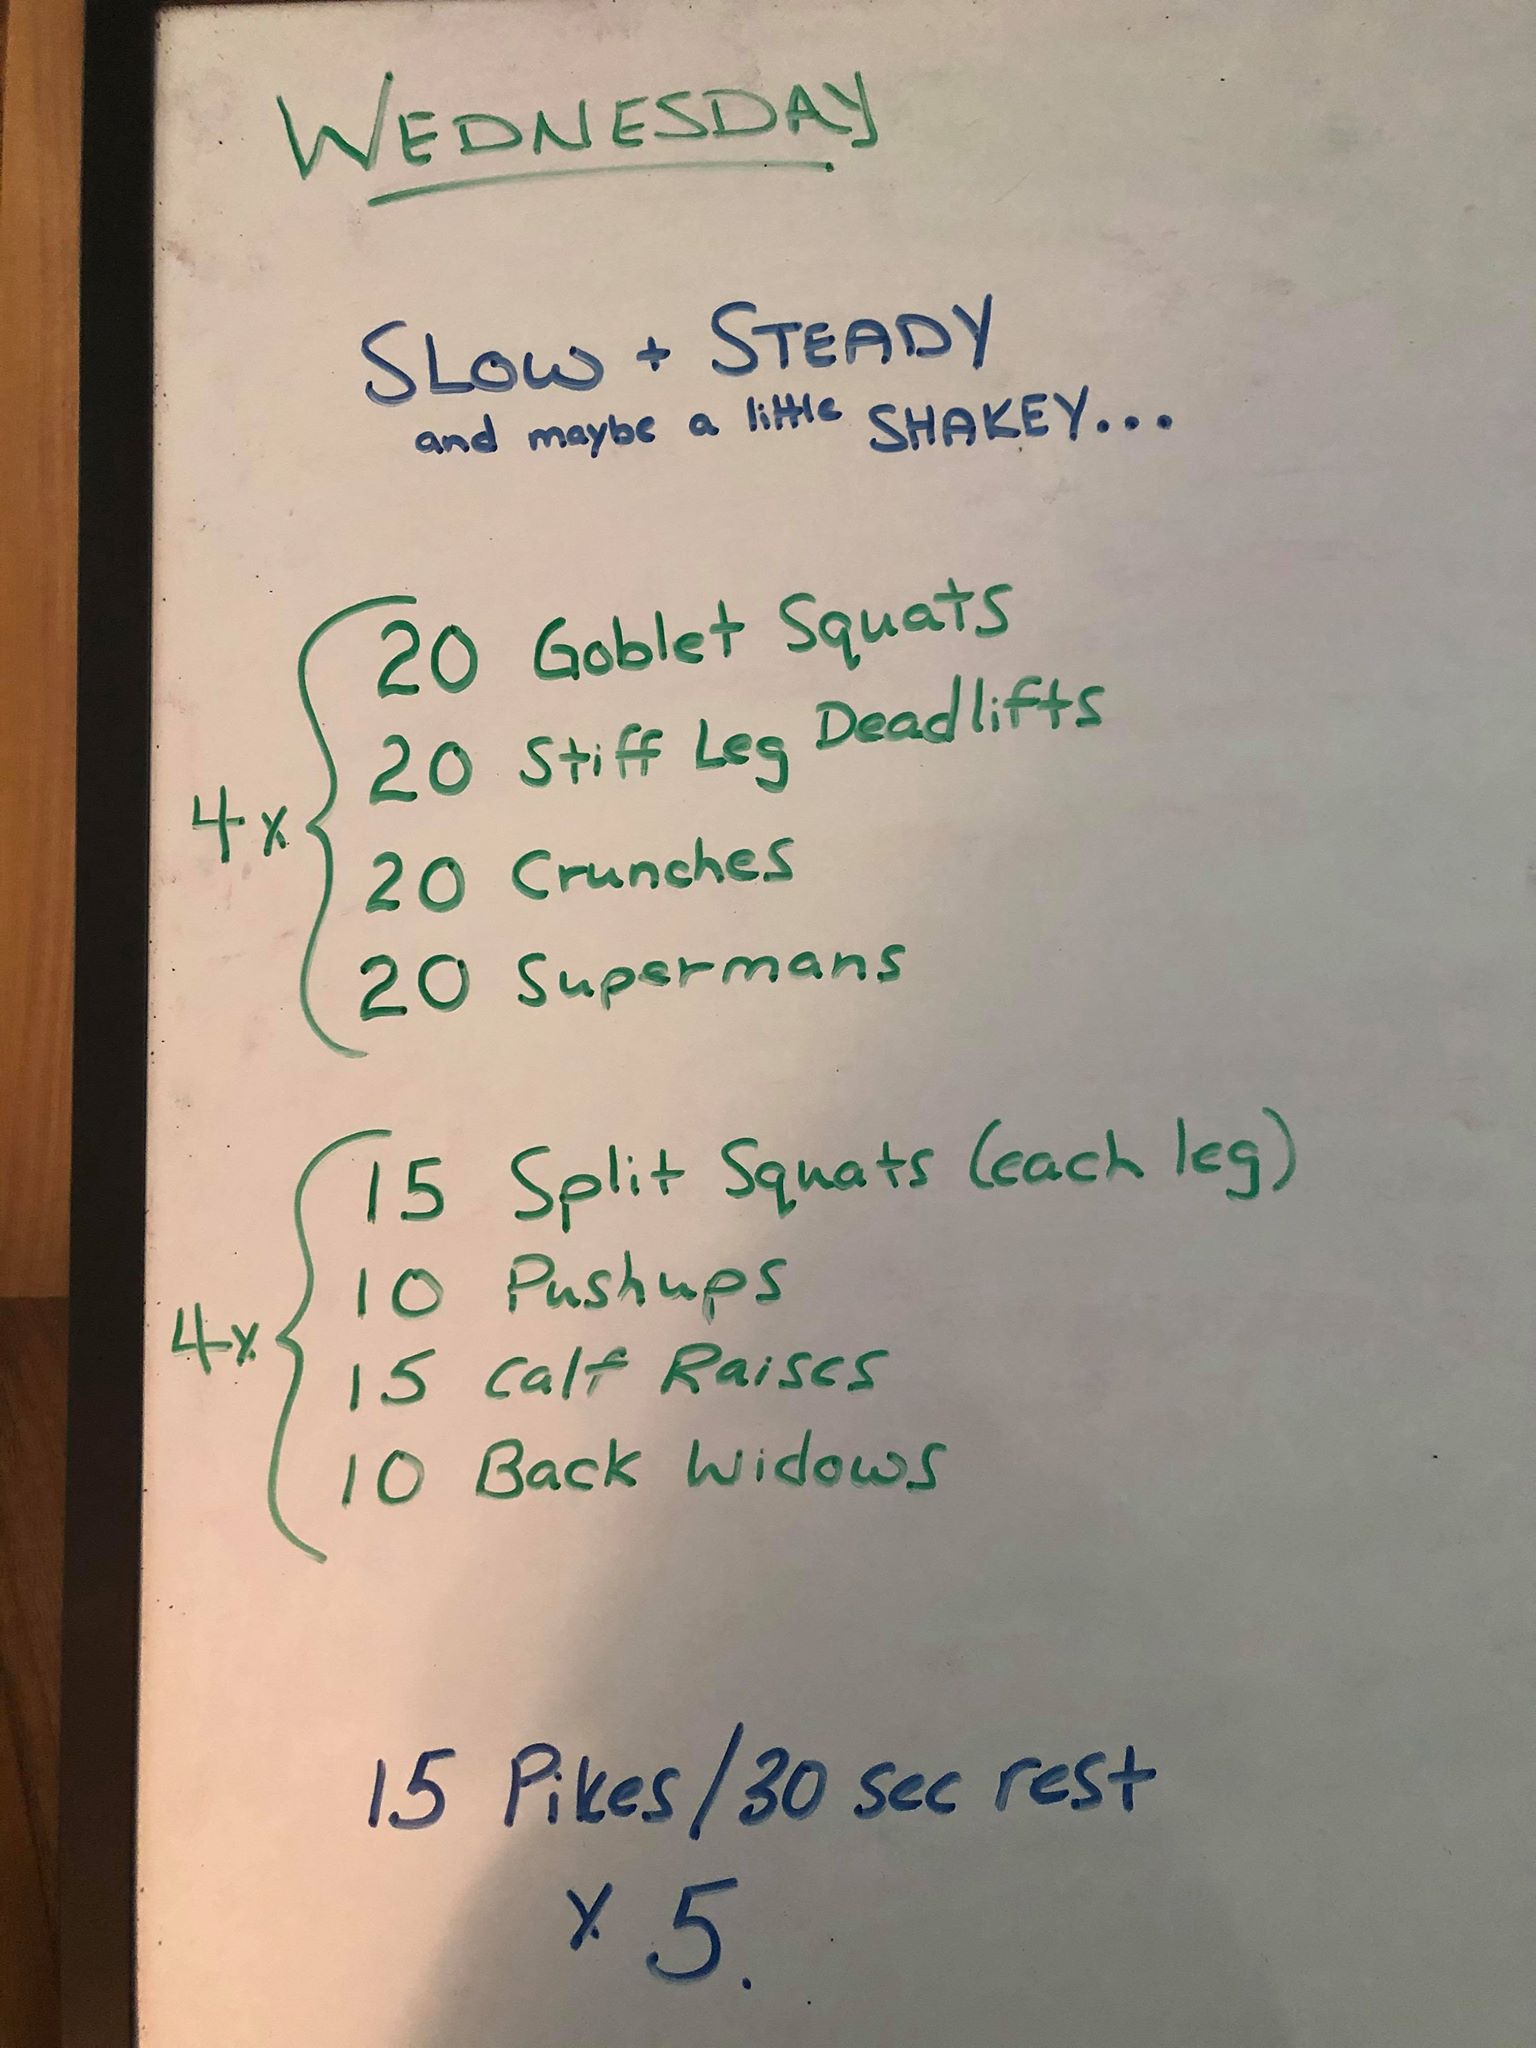 WEDNESDAY
SLOW + STEADY
and maybe a little SHAKEY...
20 Goblet Squats
20 Stiff Leg Deadlifts
4x
20 Crunches
20 Supermans
15 Split Squats (each leg)
10 Pushups
4x
15 Calf Raises
10 Back Widows
15 Pikes/30 sec rest
x 5.